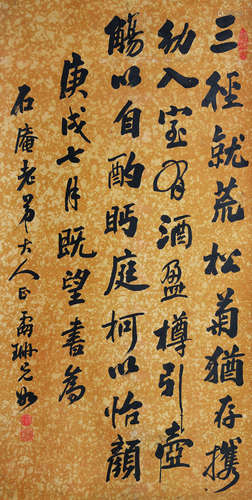 三徑就荒松菊猶存攜
幼入室有酒盈樽引壺
觴以自酌眄庭柯以怡顏
庚戌七月既望書為
石庵老弟大人正